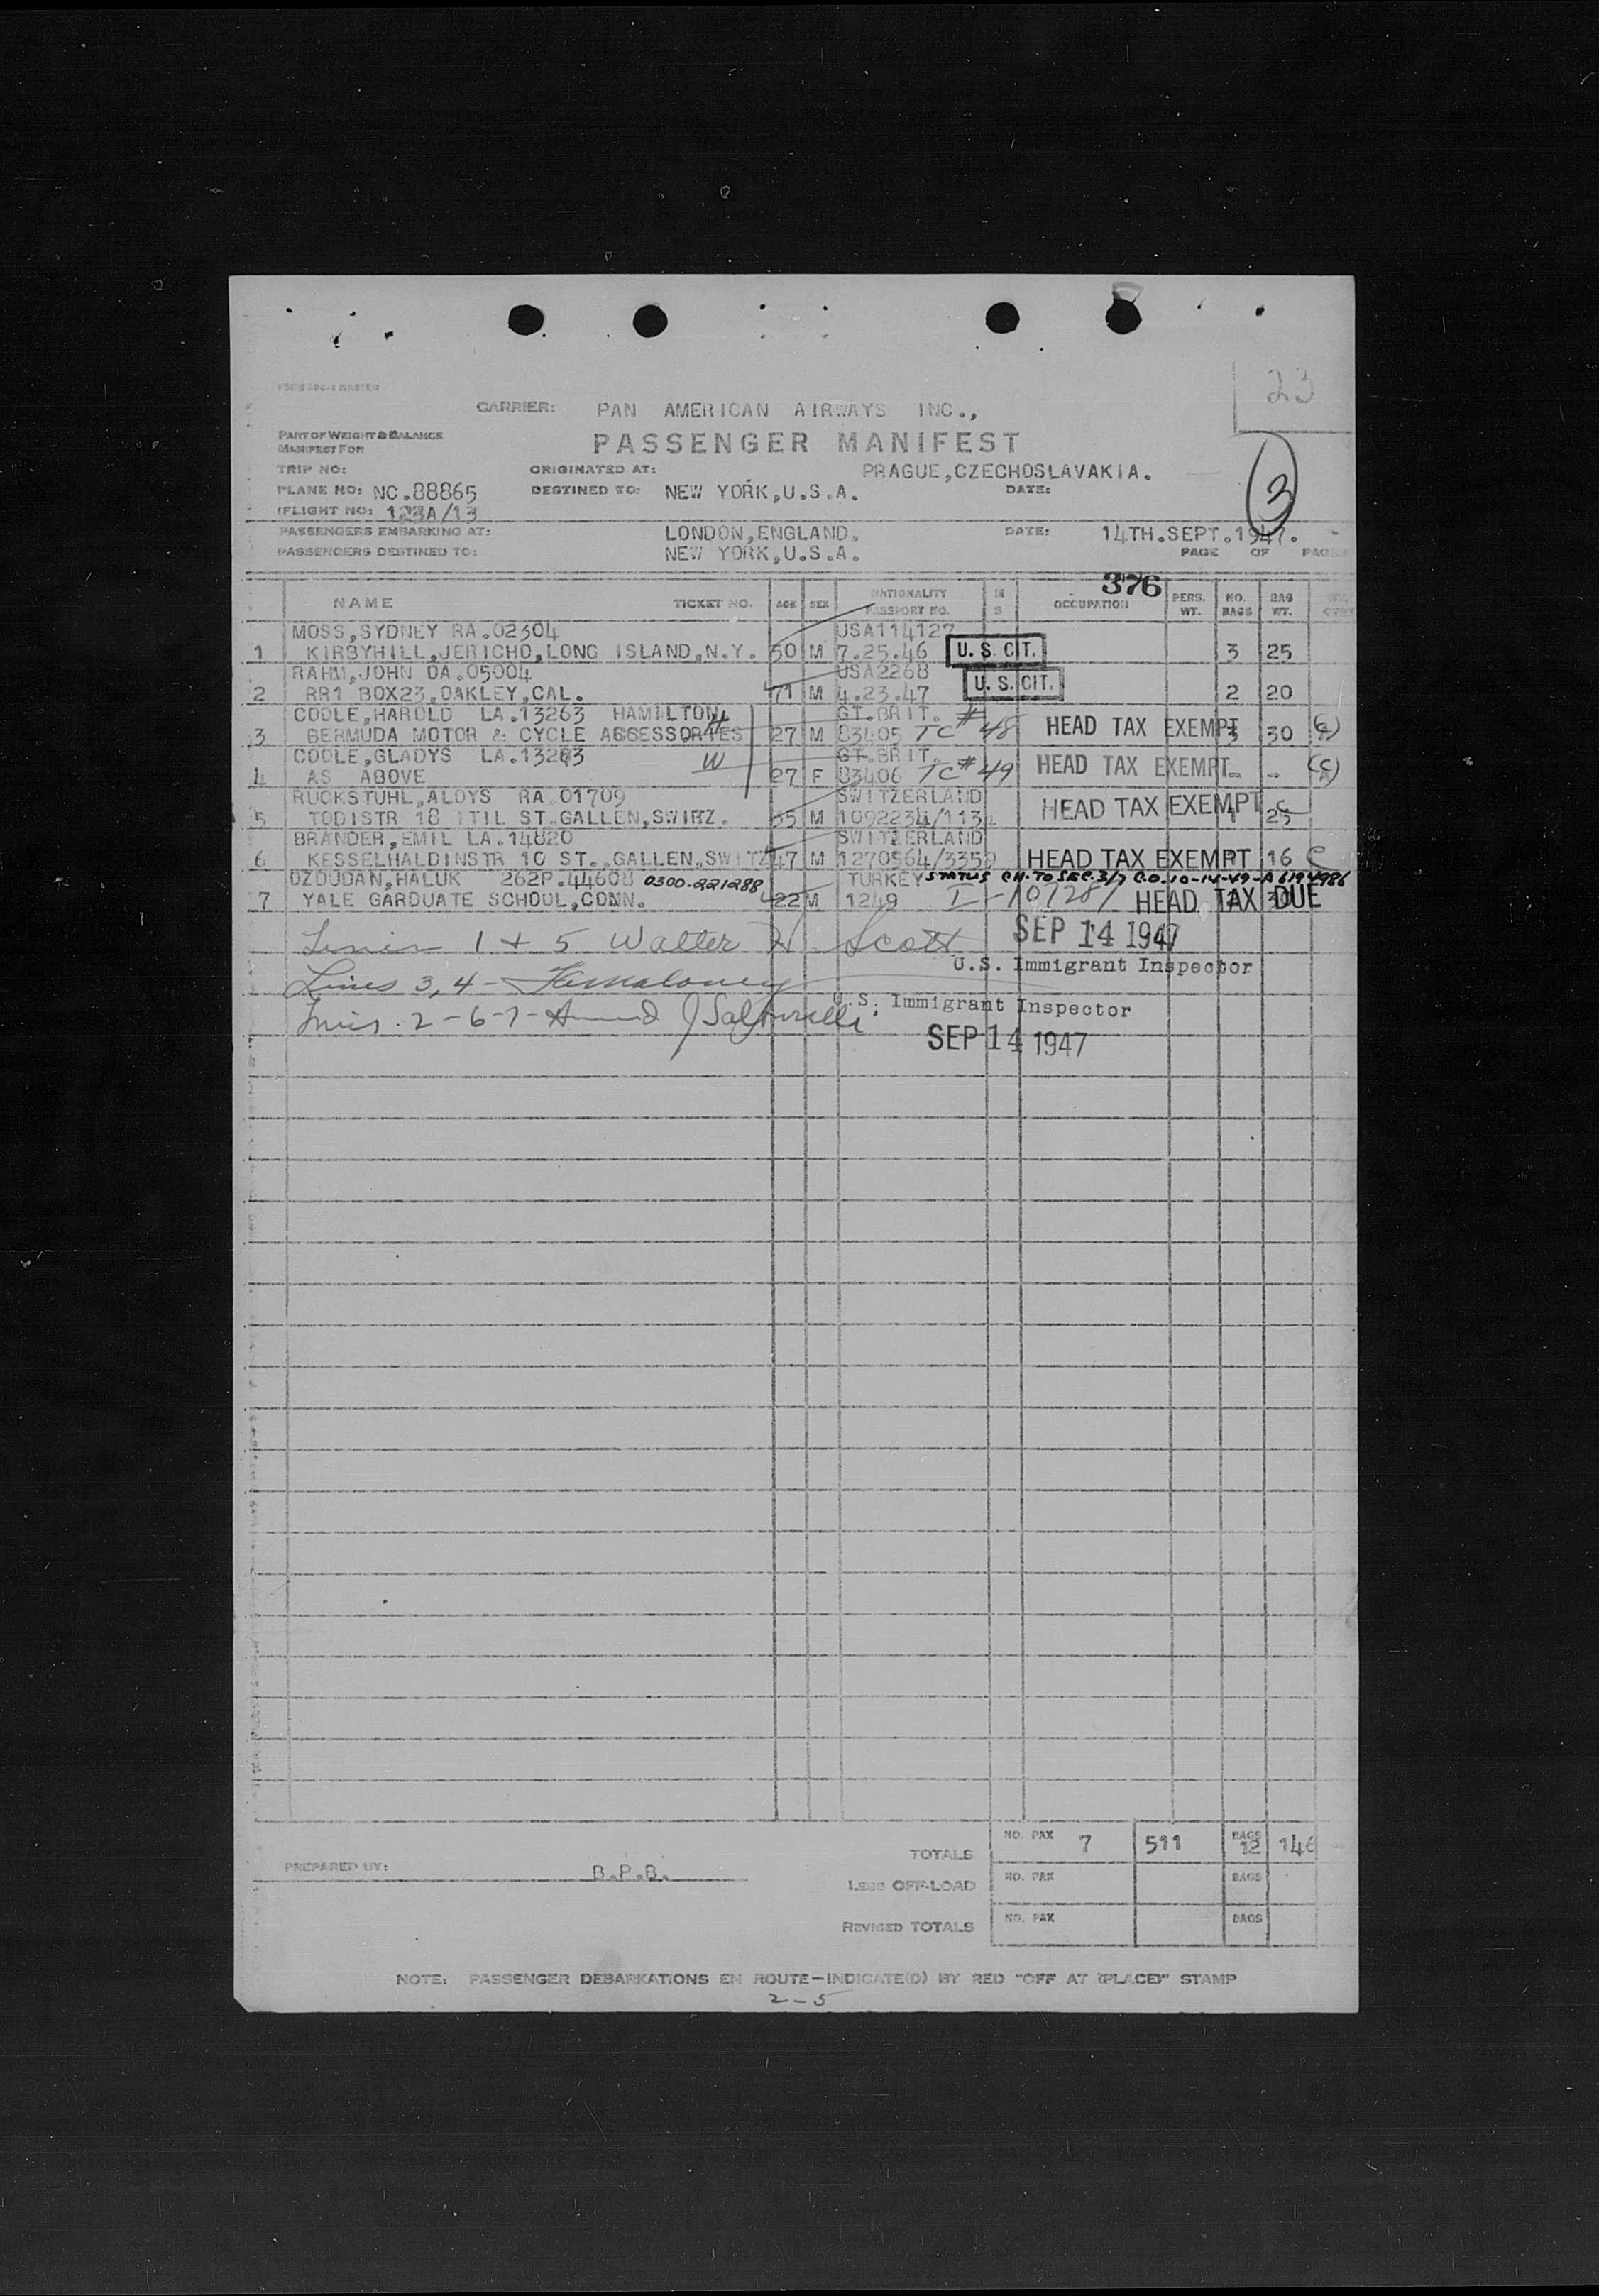 23
CARRIER: PAN AMERICAN AIRWAYS INC.,
PART OF WEIGHT & BALANCE
MANIFEST FOR
PASSENGER MANIFEST
TRIP NO: ORIGINATED AT: PRAGUE,CZECHOSLAVAKIA.
PLANE NO: NC.88865 DESTINED TO: NEW YORK,U.S.A. DATE:
3
FLIGHT NO: 123A/13
PASSENGERS EMBARKING AT: LONDON,ENGLAND. DATE: 14TH.SEPT.1947.
PASSENGERS DESTINED TO: NEW YORK,U.S.A. PAGE OF PAGES
376
NAME TICKET NO. AGE SEX NATIONALITY PASSPORT NO. OCCUPATION PERS. WT. NO. BAGS BAG WT.
MOSS,SYDNEY RA.02304 USA114127
1 KIRBYHILL,JERICHO,LONG ISLAND,N.Y. 50 M 7.25.46 U. S. CIT. 3 25
RAHM,JOHN OA.05004 USA2268
2 RR1 BOX23,OAKLEY,CAL. 71 M 4.23.47 U. S. CIT. 2 20
COOLE,HAROLD LA.13263 HAMILTON, GT.BRIT.
3 BERMUDA MOTOR & CYCLE ACCESSORIES H 27 M 83405 TC #48 HEAD TAX EXEMPT 3 30
COOLE,GLADYS LA.13263 GT.BRIT.
4 AS ABOVE W 27 F 83406 TC #49 HEAD TAX EXEMPT
RUCKSTUHL,ALOYS RA.01709 SWITZERLAND
5 TODISTR 18 ITIL ST.GALLEN,SWIRZ. 55 M 1092234/1134 HEAD TAX EXEMPT 1 25
BRANDER,EMIL LA.14820 SWITZERLAND
6 KESSELHALDINSTR 10 ST..GALLEN,SWITZ 47 M 1270564/3359 HEAD TAX EXEMPT 16 C
OZDUDAN,HALUK 262P.44608 0300-221288 TURKEY STATUS CH. TO SEC. 3/7 C.O. 10-14-49-A6194986
7 YALE GARDUATE SCHOOL,CONN. 22 M 1249 I-107287 HEAD TAX DUE
Lines 1 + 5 Walter H Scott SEP 14 1947
U.S. Immigrant Inspector
Lines 3, 4 -
U.S. Immigrant Inspector
Lines 2-6-7-
SEP 14 1947
TOTALS NO. PAX 7 511 BAGS 12 146
PREPARED BY: B.P.B.
LESS OFF-LOAD NO. PAX BAGS
REVISED TOTALS NO. PAX BAGS
NOTE: PASSENGER DEBARKATIONS EN ROUTE—INDICATE(D) BY RED "OFF AT (PLACE)" STAMP
2-5